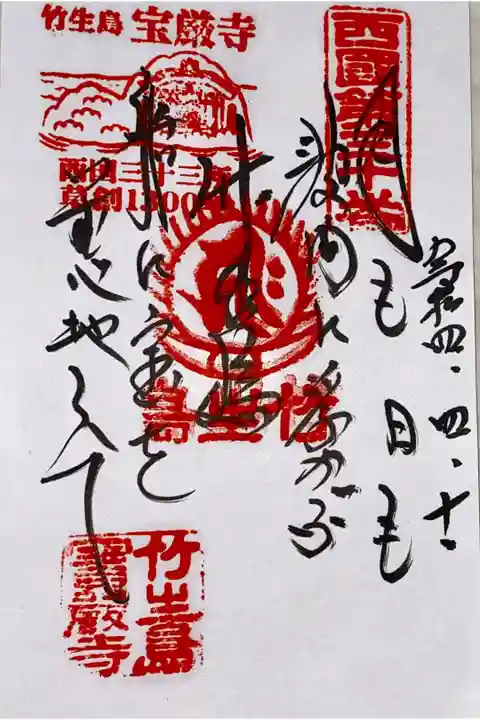 西國第三十番
令和四、四、十一
月も日も
波間に浮かぶ
竹生島
船に宝を
積む心地して
竹生島 宝厳寺
西国三十三所
草創1300年
竹生島
竹生島
寳嚴寺